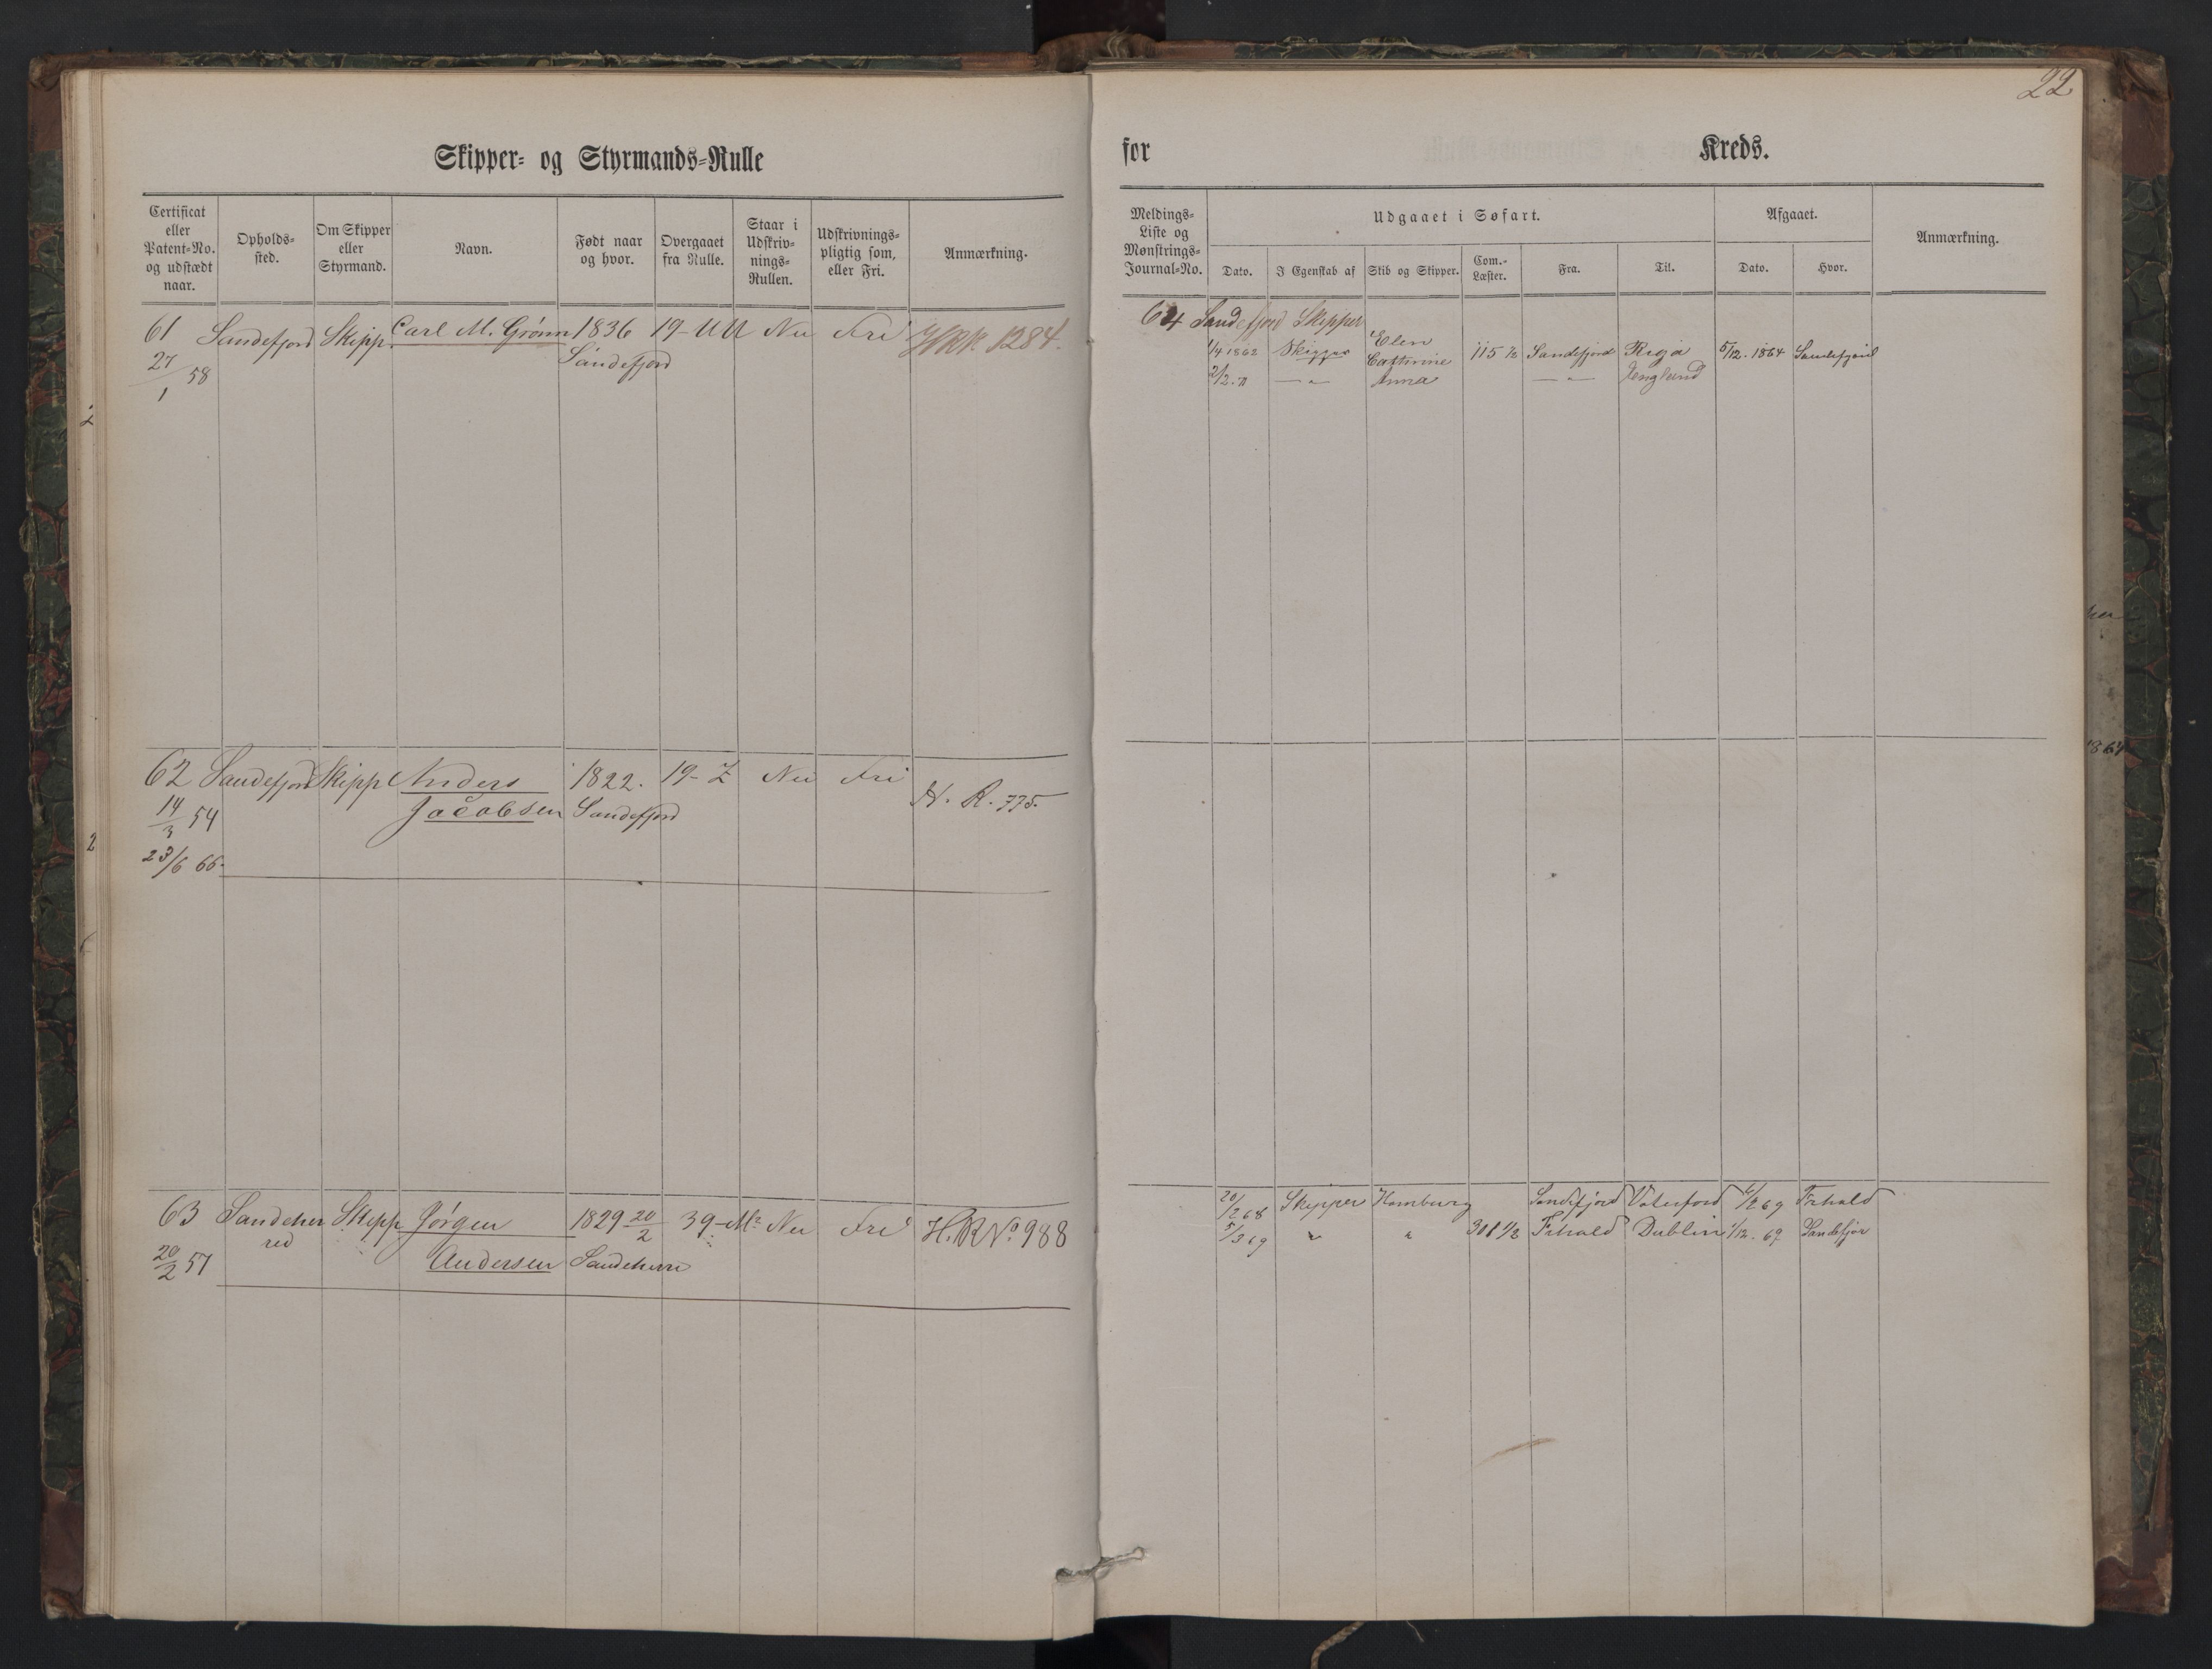 22
Skipper- og Styrmands-Rulle
for Kreds.
Certificat eller Patent-No. og udstædt naar.
Opholds-sted.
Om Skipper eller Styrmand.
Navn.
Født naar og hvor.
Overgaaet fra Rulle.
Staar i Udskriv-nings-Rullen.
Udskrivnings-pligtig som, eller Fri.
Anmærkning.
Meldings-Liste og Mønstrings-Journal-No.
Udgaaet i Søfart.
Afgaaet.
Anmærkning.
Dato.
I Egenskab af
Skib og Skipper.
Com.-Læster.
Fra.
Til.
Dato.
Hvor.
61 Sandefjord Skipp. Carl M. Grønn 1836 19-UU Nei Fri 1284.
27/1 58 Sandefjord
64 Sandefjord Skipper
1/4 1862 Skipper Elen Cathrine 115 ½ Sandefjord Riga 5/12. 1864 Sandefjord
2/2. 71 — " — Anna — " — England
62 Sandefjord Skipp Anders 1822. 19-Z Nei Fri H. R. 775.
14/3 54 Jacobsen Sandefjord
23/6 66.
63 Sandeherred Skipp Jørgen 1829 20/2 39-M² Nei Fri H.R No. 988
20/2 57 Andersen Sandeherre
20/2 68 Skipper Hamburg Sandefjord 69 Frhald
5/3 69 " " 308 ½ Frhald Dublin 1/12. 69 Sandefjor